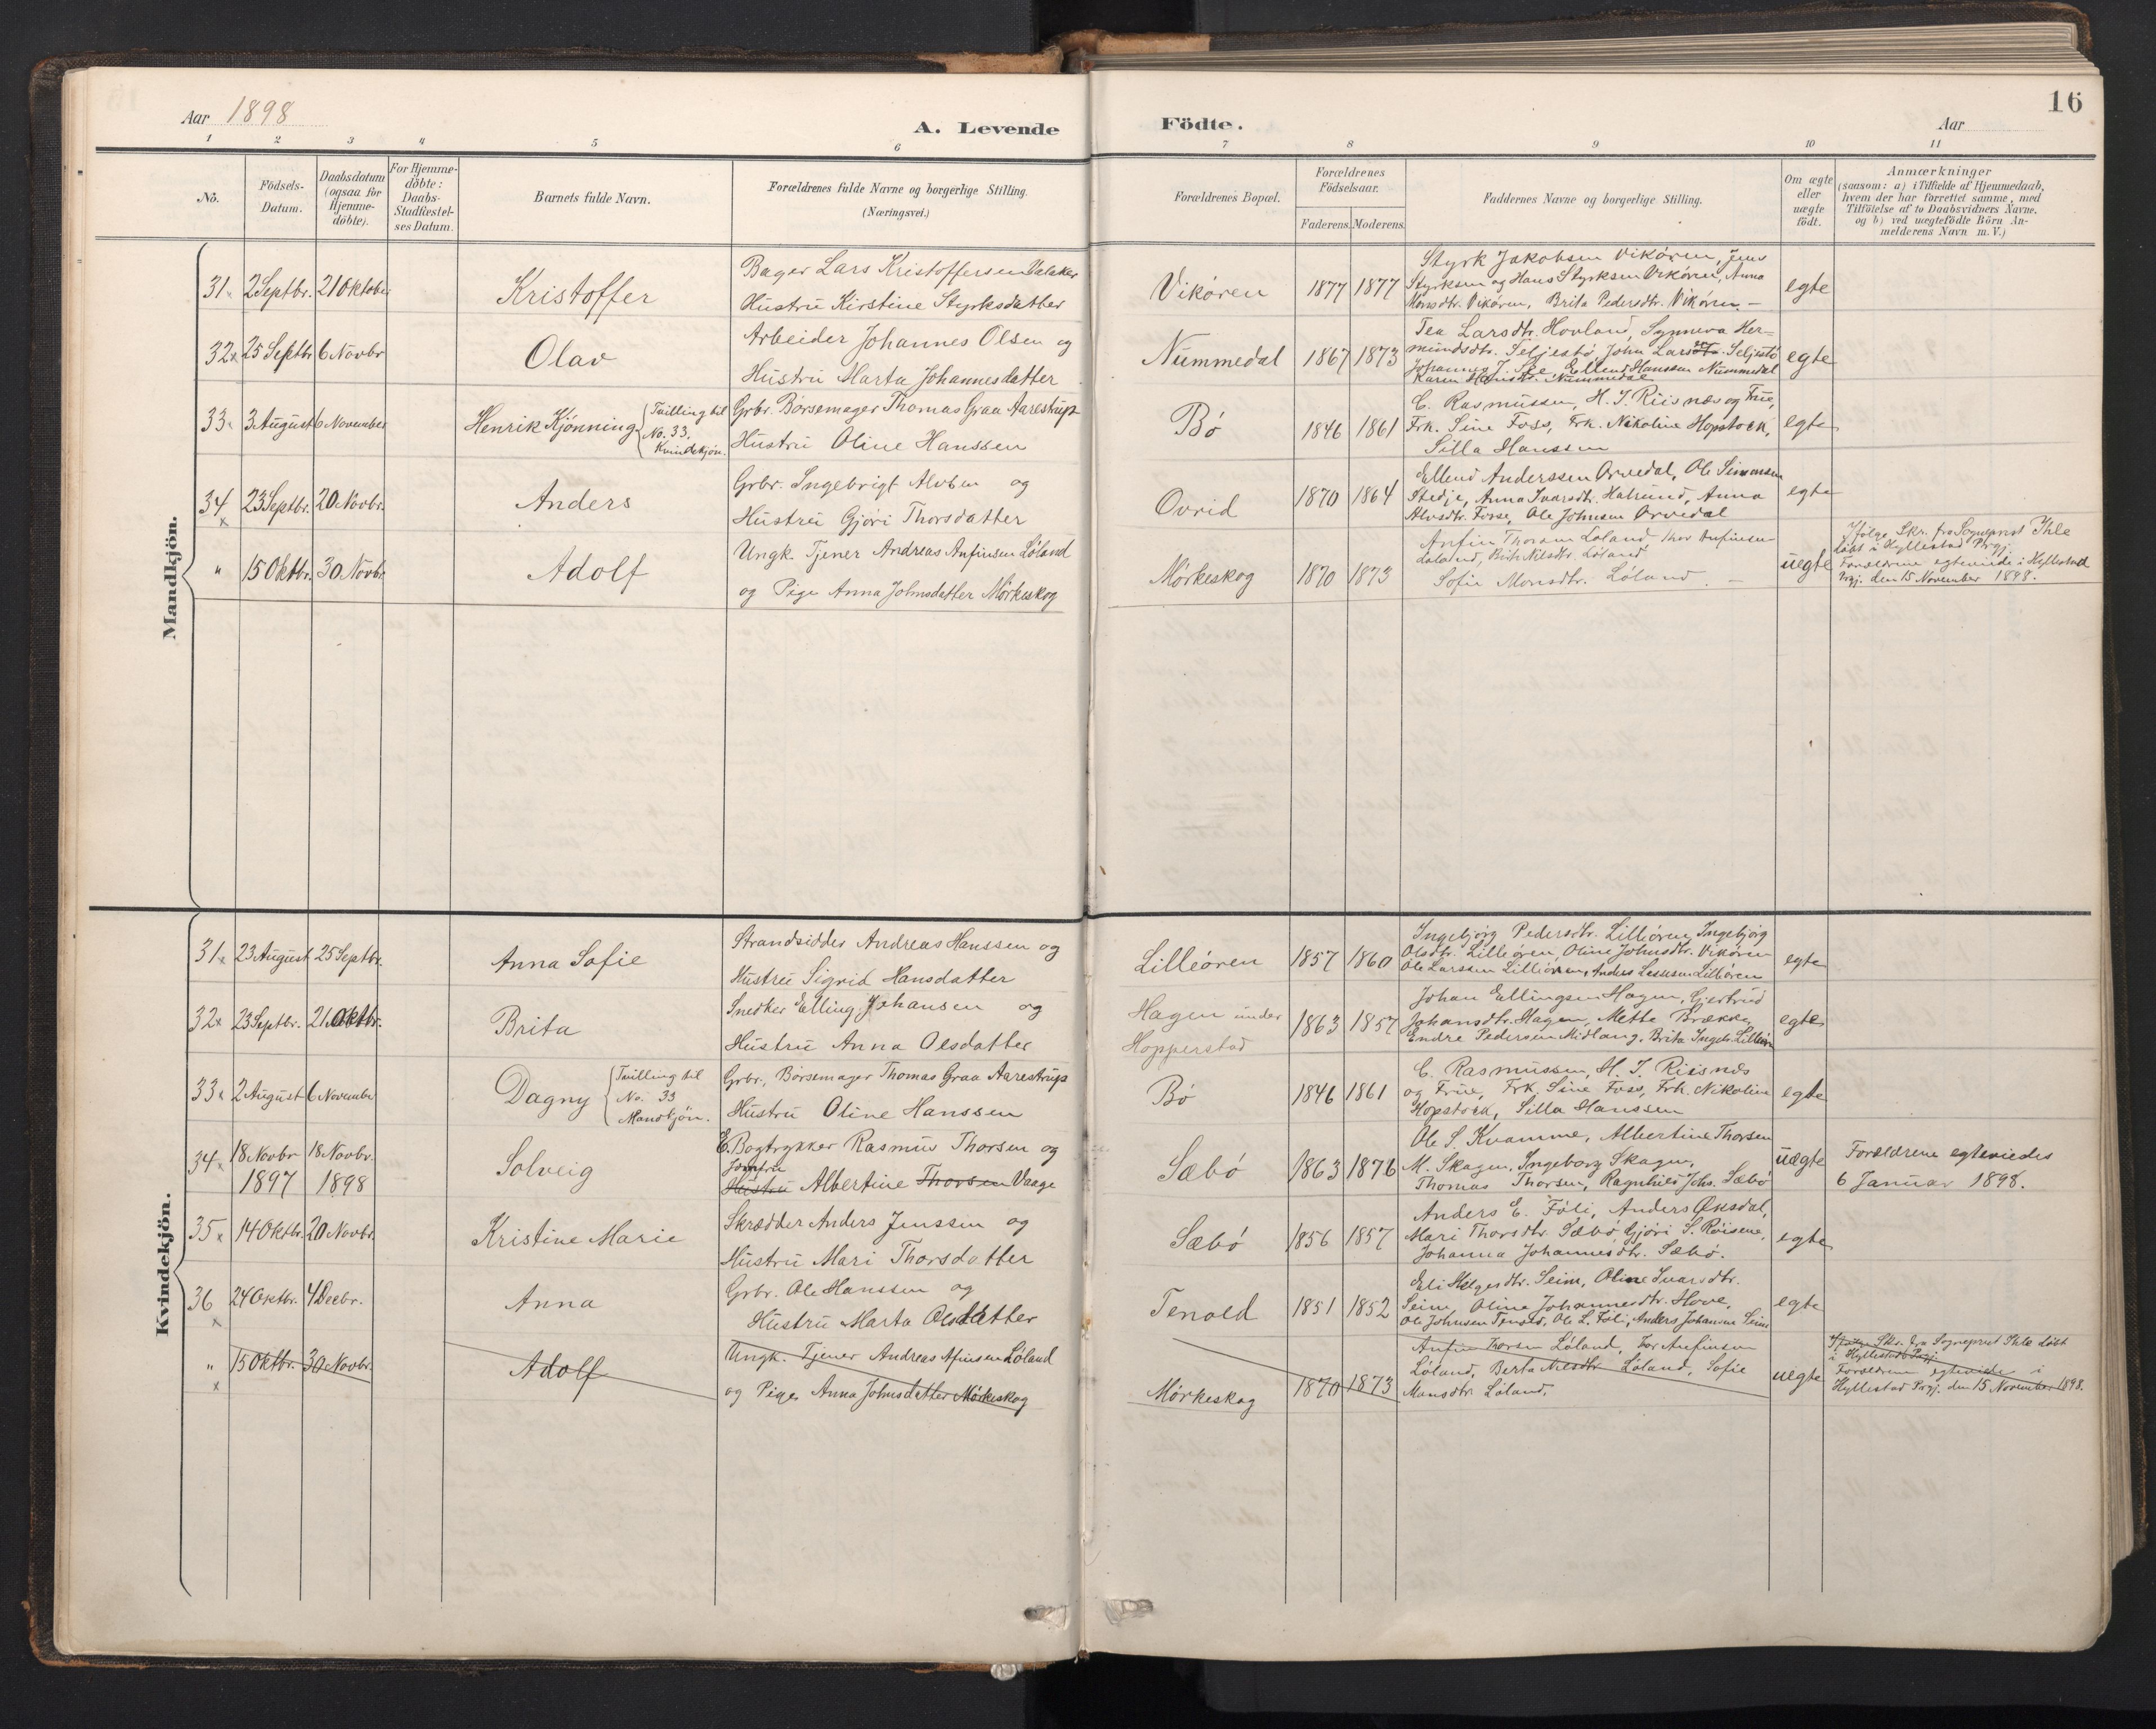 Aar 1898
A. Levende
Födte.
Aar
16
1 2 3 4 5 6 7 8 9 10 11
No.
Födsels-
Datum.
Daabsdatum
(ogsaa for
Hjemme-
döbte).
For Hjemme-
döbte:
Daabs-
Stadfæstel-
ses Datum.
Barnets fulde Navn.
Forældrenes fulde Navne og borgerlige Stilling.
(Næringsvei.)
Forældrenes Bopæl.
Forældrenes
Födselsaar.
Faderens. Moderens.
Faddernes Navne og borgerlige Stilling.
Om ægte
eller
uægte
födt.
Anmærkninger
(saasom: a) i Tilfælde af Hjemmedaab,
hvem der har forrettet samme, med
Tilföielse af to Daabsvidners Navne.
og b) ved uægtefödte Börn An-
melderens Navn m. V.)
Mandkjön.
31 2 Septbr. 21 Oktober
Kristoffer
Bager Lars Kristoffersen Valaker
Hustru Kirstine Styrksdatter
Vikøren 1877 1877
Styrk Jakobsen Vikøren, Jens
Styrksen og Hans Styrksen Vikøren, Anna
Monsdtr. Vikøren, Brita Pedersdtr. Vikøren —
egte
32 x 25 Septbr 6 Novbr
Olav
Arbeider Johannes Olsen og
Hustru Marta Johannesdatter
Nummedal 1867 1873
Tea Larsdtr. Hovland, Synneva Her-
mundsdtr. Seljestø, John Lars Seljestø
Johannes J. Ellend Hanssen Nummedal
Karen Hansdtr. Nummedal
egte
33 3 August 6 November
Henrik Kjønning
Tvilling til
No. 33,
Kvindekjøn.
Grbr. Børsemager Thomas Graa Aarestrup
Hustru Oline Hanssen
Bø 1846 1861
C. Rasmussen, H. J. Riisnæs og Frue,
Frk. Sine Foss, Frk. Nikoline Hopstock,
Silla Hanssen
egte
34 x 23 Septbr. 20 Novbr.
Anders
Grbr. Ingebrigt Alvsen og
Hustru Gjøri Thorsdatter
Ovrid 1870 1864
Ellend Anderssen Ørvedal, Ole Simonsen
Stedje, Anna Ivarsdtr. Halrund, Anna
Alvsdtr. Fosse, Ole Johnsen Ørvedal
egte
" 15 Oktbr. 30 Novbr
Adolf
Ungk. Tjener Andreas Anfinsen Løland
og Pige Anna Johnsdatter Mørkeskog
Mørkeskog 1870 1873
Anfin Thorsen Løland Thor Anfinsen
Løland, Brita Nilsdtr Løland
Sofie Monsdtr. Løland. —
uegte
Ifølge Skr. fra Sogneprest Ihle
døbt i Hyllestad Prgj.
Forældrene egteviede i Hyllestad
Prgj. den 15 November 1898.
Kvindekjön.
31 x 23 August 25 Septbr.
Anna Sofie
Strandsidder Andreas Hanssen og
Hustru Sigrid Hansdatter
Lilleøren 1857 1860
Ingebjørg Pedersdtr. Lilleøren, Ingebjørg
Olsdtr. Lilleøren, Oline Johnsdtr. Vikøren
Ole Larssen Lilleøren, Anders Lassesen Lilleøren
egte
32 x 23 Septbr. 21 Oktbr.
Brita
Snedker Elling Johansen og
Hustru Anna Olsdatter
Hagen under
Hopperstad
1863 1857
Johan Ellingsen Hagen, Gjertrud
Johansdtr. Hagen, Mette Brække
Endre Pedersen Midlang, Brita Ingebr. Lilleøren
egte
33 x 2 August 6 November
Dagny
Tvilling til
No. 33
Mandkjøn.
Grbr., Børsemager Thomas Graa Aarestrup
Hustru Oline Hanssen
Bø 1846 1861
C. Rasmussen, H. J. Riisnæs
og Frue, Frk. Sine Foss, Frk. Nikoline
Hopstock, Silla Hanssen
egte
34 x 18 Novbr 18 Novbr.
1897 1898
Solveig
E. Bogtrykker Rasmus Thorsen og
Jomfru
Hustru Albertine Thorsen Vaage
Sæbø 1863 1876
Ole S. Kvamme, Albertine Thorsen
M. Skagen, Ingeborg Skagen,
Thomas Thorsen, Ragnhild Johs. Sæbø
uægte
Forældrene egteviedes
6 Januar 1898.
35 x 14 Oktbr. 20 Novbr.
Kristine Marie
Skrædder Anders Jenssen og
Hustru Mari Thorsdatter
Sæbø 1856 1857
Anders E. Føli, Anders Øksdal,
Mari Thorsdtr. Sæbø, Gjøri S. Røisene,
Johanna Johannesdtr. Sæbø.
egte
36 x 24 Oktbr. 4 Decbr.
Anna
Grbr. Ole Hanssen og
Hustru Marta Olsdatter
Tenold 1851 1852
Eli Helgesdtr. Seim, Oline Ivarsdtr.
Seim, Oline Johannesdtr. Hove,
Ole Johnsen Tenold, Ole L. Føli, Anders Johansen Seim
egte
" x 15 Oktbr. 30 Novbr.
Adolf
Ungk. Tjener Andreas Afinsen Løland
og Pige Anna Johnsdatter Mørkeskog
Mørkeskog 1870 1873
Anfin Thorsen Løland, Tor Anfinsen
Løland, Berta Nilsdtr Løland, Sofie
Monsdtr Løland.
uegte
Ifølge Skr. fra Sogneprest Ihle døbt
i Hyllestad Prgj.
Forældrene egteviede i
Hyllestad Prgj. den 15 November 1898.